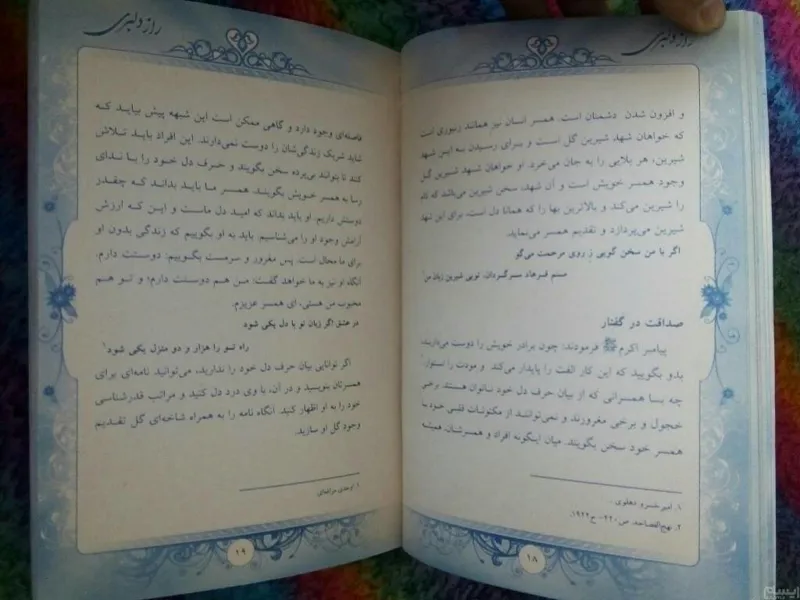 راز دلبری
و افزون شدن دشمنان است. همسر انسان نیز همانند زنبوری است
که خواهان شهد شیرین گل است و برای رسیدن به این شهد
شیرین، هر بلایی را به جان می‌خرد. او خواهان شهد شیرین گل
وجود همسر خویش است و آن شهد، سخن شیرین می‌باشد که کام
را شیرین می‌کند و بالاترین بها را که همانا دل است، برای این شهد
شیرین می‌پردازد و تقدیم همسر می‌نماید.
اگر با من سخن گویی ز روی مرحمت می‌گو
منم فرهاد سرگردان، تویی شیرین زبان من
صداقت در گفتار
پیامبر اکرم ﷺ فرمودند: چون برادر خویش را دوست می‌دارید،
بدو بگویید که این کار الفت را پایدار می‌کند و مودت را استوار.
چه بسا همسرانی که از بیان حرف دل خود ناتوان هستند. برخی
خجول و برخی مغرورند و نمی‌توانند از مکنونات قلبی خود با
همسر خود سخن بگویند. میان اینگونه افراد و همسرشان، همیشه
۱. امیرخسرو دهلوی.
۲. نهج‌الفصاحه، ص۲۲۰- ح۱۹۲۲.
۱۸
راز دلبری
فاصله‌ای وجود دارد و گاهی ممکن است این شبهه پیش بیاید که
شاید شریک زندگی‌شان را دوست نمی‌دارند. این افراد باید تلاش
کنند تا بتوانند بی‌پرده سخن بگویند و حرف دل خود را با ندای
رسا به همسر خویش بگویند. همسر ما باید بداند که چقدر
دوستش داریم. او باید بداند که امید دل ماست و این که ارزش
آرامش وجود او را می‌شناسیم. باید به او بگوییم که زندگی بدون او
برای ما محال است. پس مغرور و سرمست بگوییم: دوستت دارم.
آنگاه او نیز به ما خواهد گفت: من هم دوستت دارم؛ و تو هم
محبوب من هستی، ای همسر عزیزم.
در عشق اگر زبان تو با دل یکی شود
راه تو را هزار و دو منزل یکی شود۱
اگر توانایی بیان حرف دل خود را ندارید، می‌توانید نامه‌ای برای
همسرتان بنویسید و در آن، با وی درد دل کنید و مراتب قدرشناسی
خود را به او اظهار کنید. آنگاه نامه را به همراه شاخه‌ای گل تقدیم
وجود گل او سازید.
۱. اوحدی مراغه‌ای
۱۹